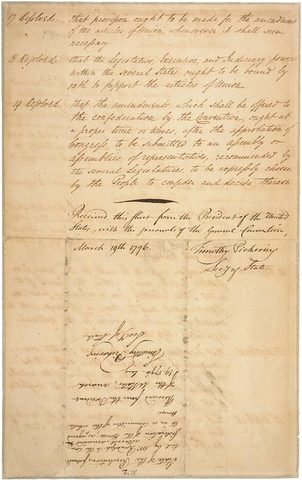 17 Resolved. that provision ought to be made for the amendment
of the articles of Union, whensoever it shall seem
necessary.
18 Resolved. that the Legislative, Executive, and Judiciary powers
within the several States ought to be bound by
oath to support the articles of Union
19 Resolved. that the amendments which shall be offered to
the confederation by the Convention, ought at
a proper time or times, after the approbation of
Congress to be submitted to an assembly or
assemblies of representatives, recommended by
the several Legislatures, to be expressly chosen
by the People to consider and decide thereon
Received this sheet from the President of the United
States, with the journals of the General Convention,
March 19th 1796.
Timothy Pickering
Secy of State
State of the Resolutions
by Mr.
to a committee of the whole
House
Received from the President
of the United States, March
19. 1796. by
Timothy Pickering
Secy of State